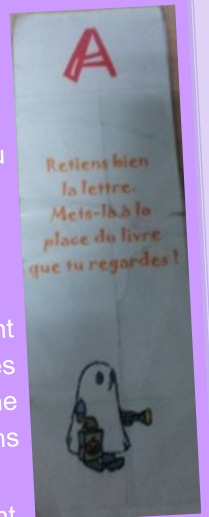 A
Retiens bien
la lettre.
Mets-là à la
place du livre
que tu regardes !